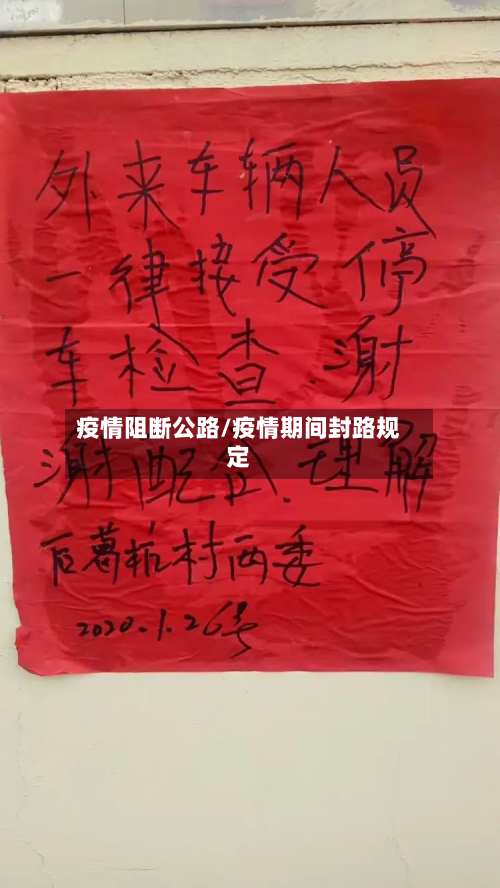 外来车辆人员
一律接受停
车检查.谢
谢配合.理解
后葛村两委
2020.1.26号
疫情阻断公路/疫情期间封路规
定